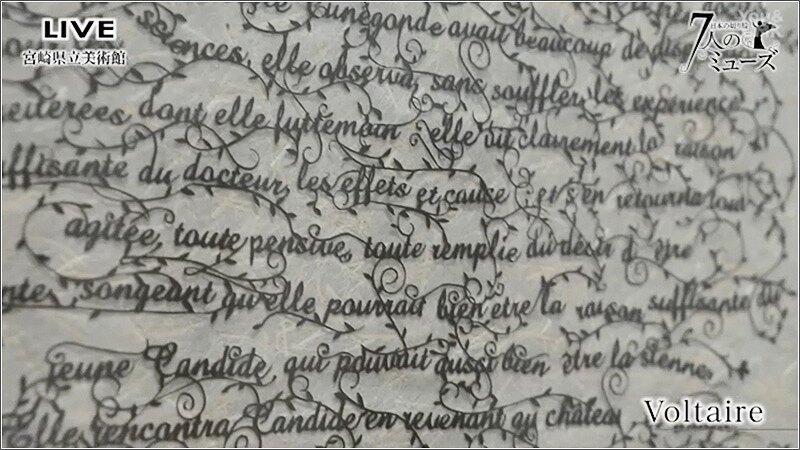 LIVE
宮崎県立美術館
日本の切り絵
7人の
ミューズ
Cunégonde avait beaucoup de
sciences, elle observa, sans souffler, les expérience
réitérées dont elle fut témoin elle vit clairement la raison
suffisante du docteur, les effets et cause et s'en retourna tout
agitée, toute pensive, toute remplie du désir d'être
songeant qu'elle pourrait bien être la raison suffisante du
jeune Candide, qui pouvait aussi bien être la sienne
Elle rencontra Candide en revenant au château
Voltaire